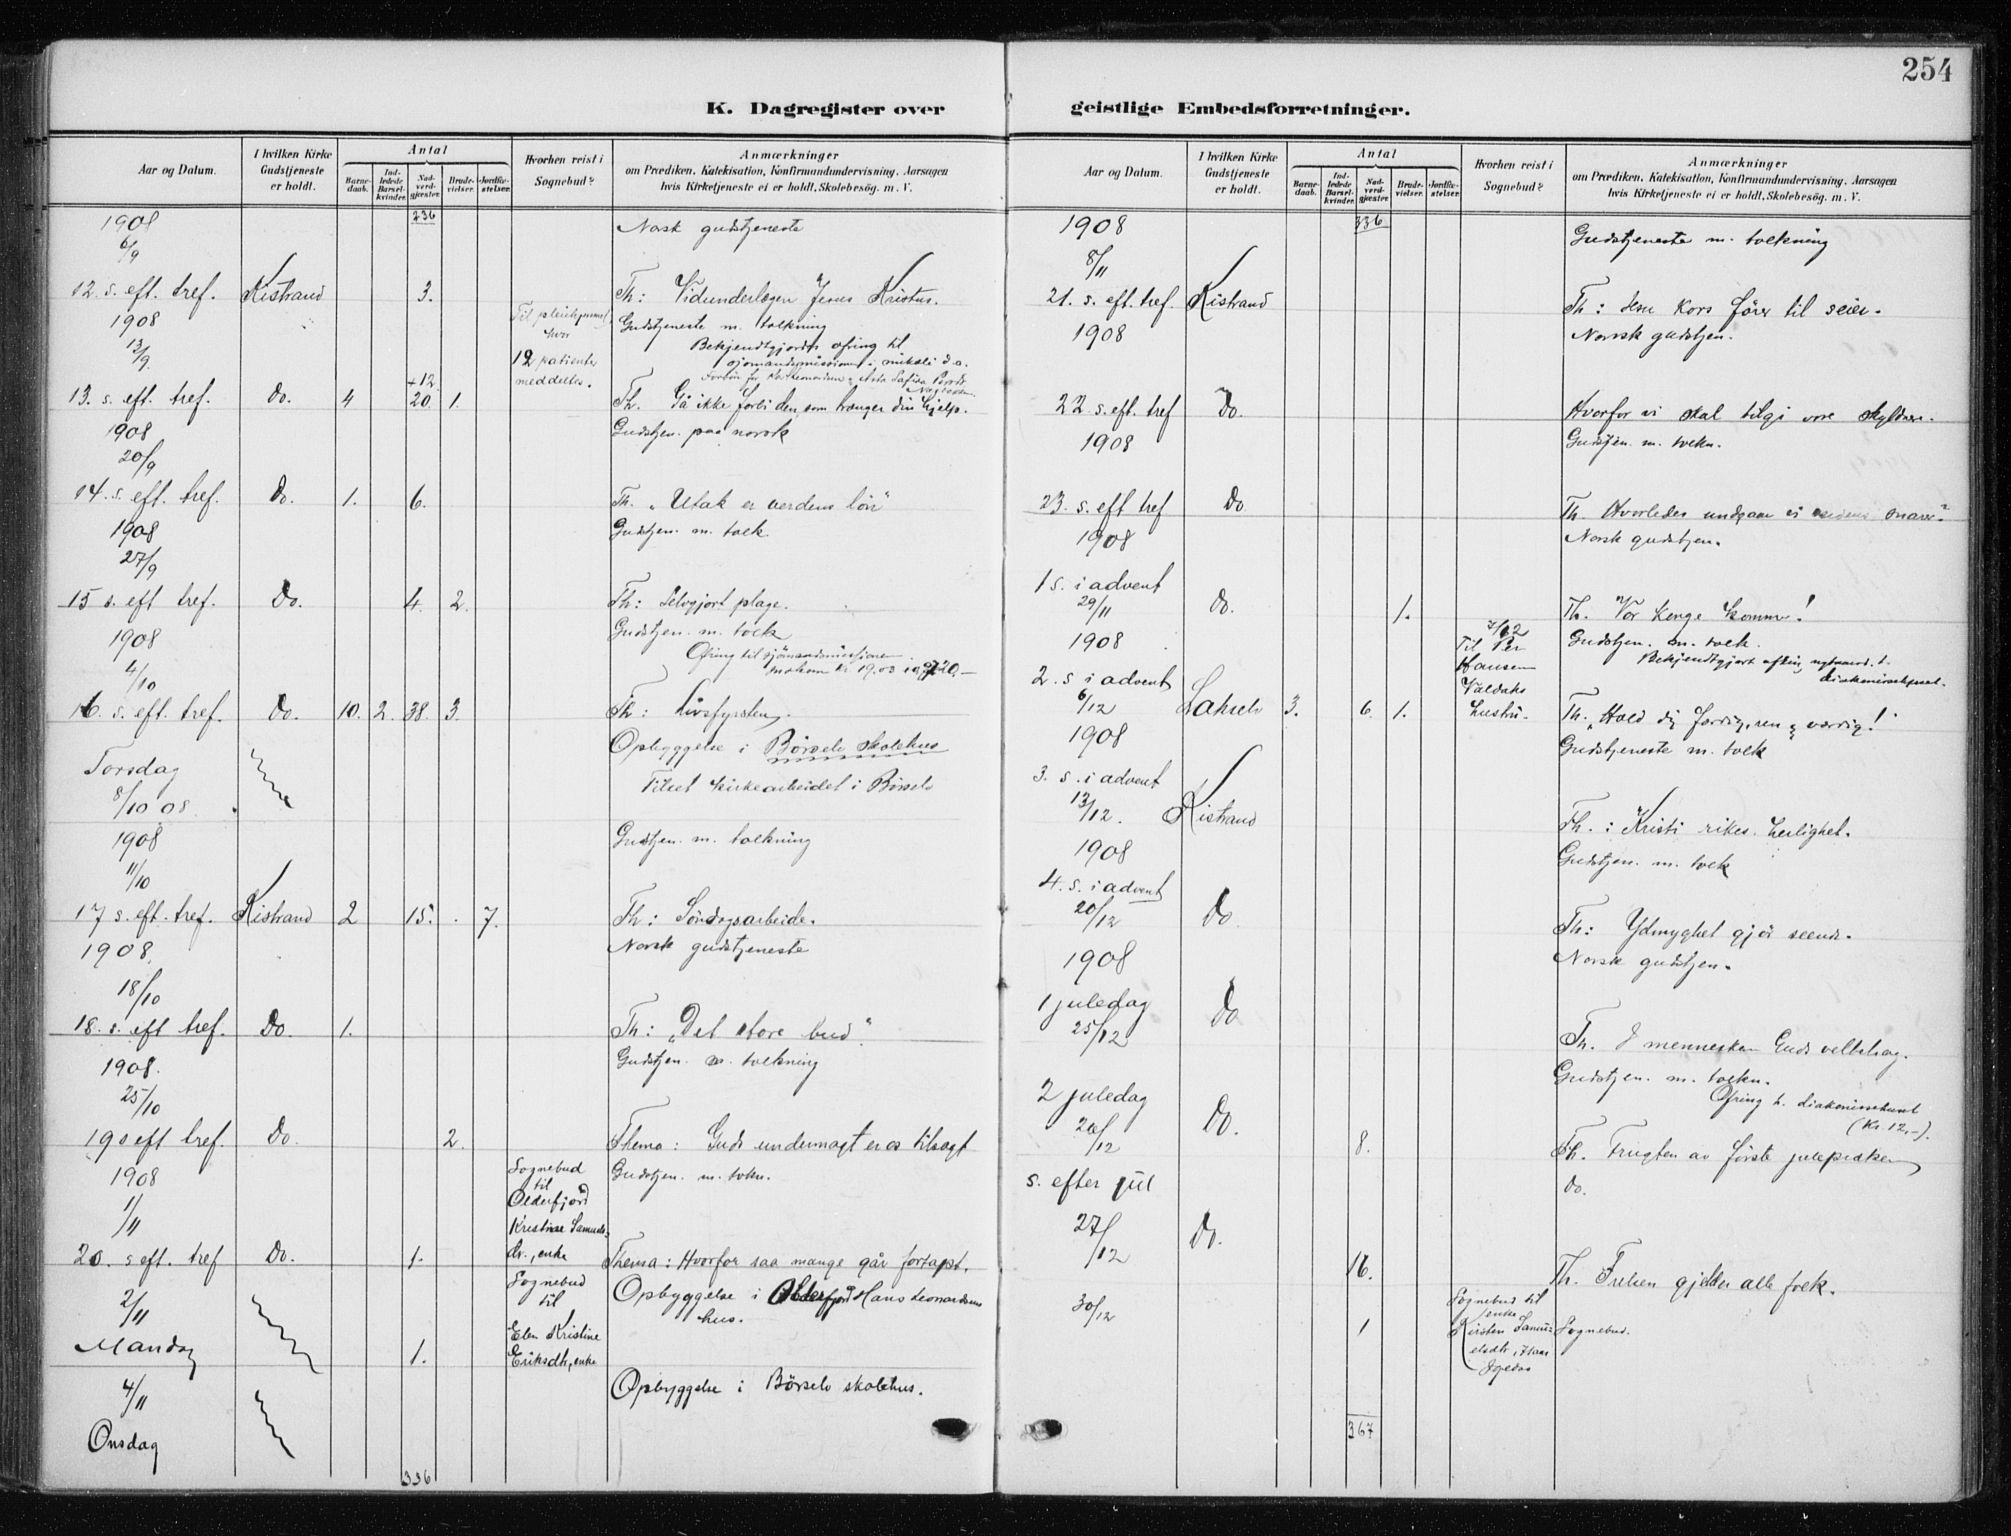 254
K. Dagregister over geistlige Embedsforretninger.
Aar og Datum.
I hvilken Kirke Gudstjeneste er holdt.
Antal
Barnedaab.
Indledede Barselkvinder.
Nadverdgjester.
Brudevielser.
Jordfæstelser.
Hvorhen reist i Sognebud?
Anmærkninger
om Prædiken, Katekisation, Konfirmandundervisning, Aarsagen
hvis Kirketjeneste ei er holdt, Skolebesög. m. V.
1908 236 Norsk gudstjeneste
6/9
12. s. eft. tref. Kistrand 3. Th: Vidunderlægen Jesus Kristus.
1908 Til hvor Gudstjeneste m. tolkning
13/9. 12 patienter Bekjendtgjordt ofring til
meddeltes.
+12
13. s. eft. tref. Do. 4 20. 1. Th. Gå ikke forbi den, som trænger din hjelp.
1908 Gudstjen. paa norsk
20/9
14. s. eft. tref. Do. 1. 6. Th. „Utak er verdens lön"
1908 Gudstjen. m. tolk
27/9
15 s. eft tref. Do. 4. 2. Th: Selvgjort plage.
1908 Gudstjen. m. tolk
4/10 Ofring til sjömandsmissionen
16. s. eft. tref. Do. 10. 2. 38. 3. Th: Livsfyrsten.
Opbyggelse i Börselv skolehus
Torsdag Tilset kirkearbeidet i Börselv
8/10 08.
1908 Gudstjen. m. tolkning
11/10
17 s. eft. tref. Kistrand 2 15. 7. Th: Söndagsarbeide.
1908. Norsk gudstjeneste
18/10
18. s. eft tref. Do. 1. Th: „Det store bud".
1908. Gudstjen. m. tolkning
25/10
19 s eft tref. Do. 2. Thema: Guds undermagt er os tilsagt
1908 Sognebud til Olderfjord Gudstjen. m. tolkn.
1/11 Kristine Samuelsdr., enke
20. s eft. tref Do. 1. Thema: Hvorfor saa mange går fortapt.
2/11 Sognebud til Opbyggelse i Olderfjord Hans Leonardsens hus.
Mandag 1. Elen Kristine Eriksdtr, enke
4/11 Opbyggelse i Börselv skolehus.
Onsdag
336
Aar og Datum.
I hvilken Kirke Gudstjeneste er holdt.
Antal
Barnedaab.
Indledede Barselkvinder.
Nadverdgjester.
Brudevielser.
Jordfæstelser.
Hvorhen reist i Sognebud?
Anmærkninger
om Prædiken, Katekisation, Konfirmandundervisning, Aarsagen
hvis Kirketjeneste ei er holdt, Skolebesög. m. V.
1908 336 Gudstjeneste m. tolkning
8/11
21. s. eft. tref. Kistrand Th: Jesu kors förer til seier.
1908 Norsk gudstjen.
22. s. eft. tref Do. Hvorfor vi skal tilgi vore skyldnere.
1908 Gudstjen. m. tolkn.
23. s. eft tref Do Th. Hvorledes undgaar vi verdens snarer?
1908 Norsk gudstjen.
1 s. i advent
29/11 Do. 1. Th. Vor konge kommer!
1908 7/12 Til Per Hansen Valdaks hustru. Gudstjen. m. tolk.
2. s. i advent
6/12 Lakselv 3. 6. 1. Th. „Hold dig færdig, ren og værdig!"
1908 Gudstjeneste m. tolk
3. s. i advent
13/12. Kistrand Th.: Kristi rikes herlighet.
1908 Gudstjen. m. tolk
4. s. i advent
20/12 Do. Th: Ydmyghet gjör seende.
1908 Norsk gudstjen.
1 juledag Do
25/12 Th. I mennesker Guds velbehag.
Gudstjen. m. tolkn.
2 juledag Do. Ofring t. diakonissehuset (kr. 12,-).
26/12 8. Th. Frugten av förste juleprædiken
s. efter jul do.
27/12 Do.
16. Th. Frelsen gjelder alle folk.
30/12 1 Sognebud til enke Kirsten Samuelsdtr, Sognebud.
367